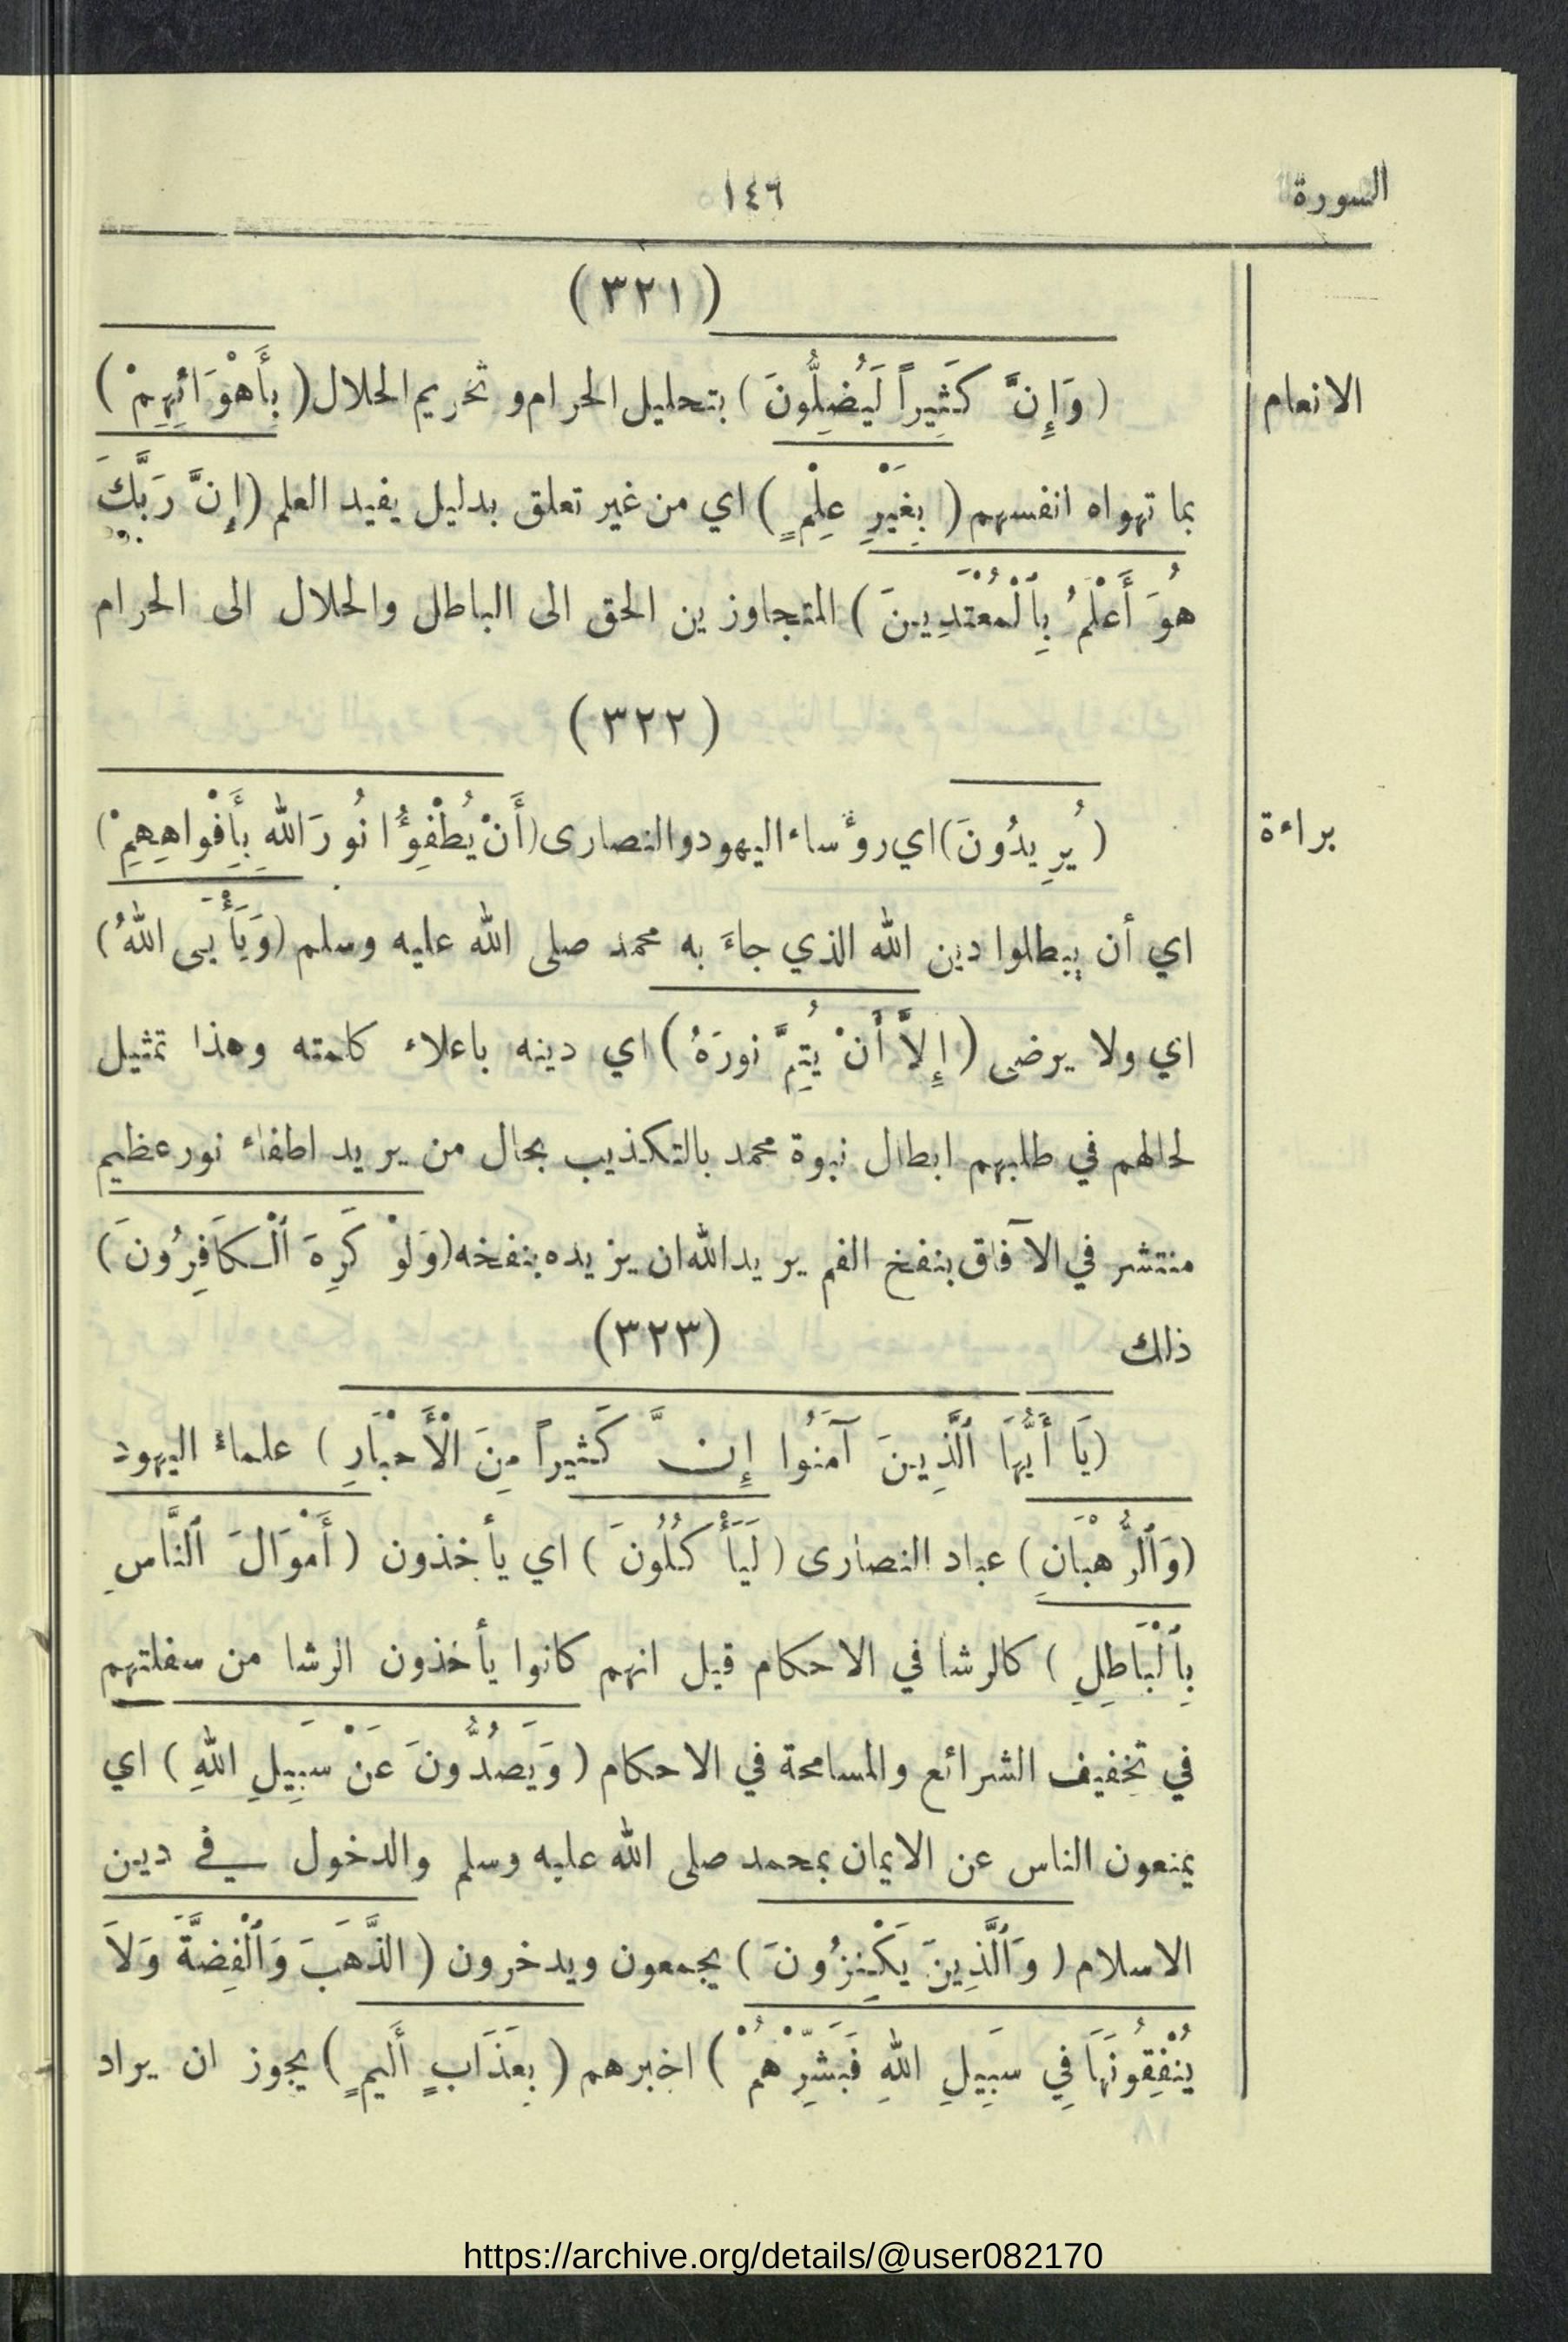 السورة
١٤٦
(٣٢١)
الانعام
(وَإِنَّ كَثِيراً لَيُضِلُّونَ) بتحليل الحرام و تحريم الحلال (بِأَهْوَائِهِمْ)
بما تهواه انفسهم (بِغَيْرِ عِلْمٍ) اي من غير تعلق بدليل يفيد العلم (إِنَّ رَبَّكَ
هُوَ أَعْلَمُ بِٱلْمُعْتَدِينَ) المتجاوزين الحق الى الباطل والحلال الى الحرام
(٣٢٢)
براءة
(يُرِيدُونَ) اي رؤساء اليهود والنصارى (أَنْ يُطْفِؤُا نُورَ اللهِ بِأَفْوَاهِهِمْ)
اي أن يبطلوا دين الله الذي جاءَ به محمد صلى الله عليه وسلم (وَيَأْبَى اللهُ)
اي ولا يرضى (إِلاَّ أَنْ يُتِمَّ نورَهُ) اي دينه باعلاء كلمته وهذا تمثيل
لحالهم في طلبهم ابطال نبوة محمد بالتكذيب بحال من يريد اطفاء نور عظيم
منتشر في الآفاق بنفخ الفم يريد الله ان يزيده بنفخه (وَلَوْ كَرِهَ ٱلْكَافِرُونَ)
ذلك
(٣٢٣)
(يَا أَيُّهَا ٱلَّذِينَ آمَنُوا إِنَّ كَثيراً مِنَ الْأَحْبَارِ) علماءُ اليهود
(وَٱلرُّهْبَانِ) عباد النصارى (لَيَأْكُلُونَ) اي يأخذون (أَمْوَالَ ٱلنَّاسِ
بِٱلْبَاطِلِ) كالرشا في الاحكام قيل انهم كانوا يأخذون الرشا من سفلتهم
في تخفيف الشرائع والمسامحة في الاحكام (وَيَصُدُّونَ عَنْ سَبِيلِ اللهِ) اي
يمنعون الناس عن الايمان بمحمد صلى الله عليه وسلم والدخول في دين
الاسلام (وَٱلَّذِينَ يَكْنِزُونَ) يجمعون ويدخرون (الذَّهَبَ وَٱلْفِضَّةَ وَلاَ
يُنْفِقُونَهَا فِي سَبِيلِ اللهِ فَبَشِّرْهُمْ) اخبرهم (بِعَذَابٍ أَلِيمٍ) يجوز ان يراد
https://archive.org/details/@user082170